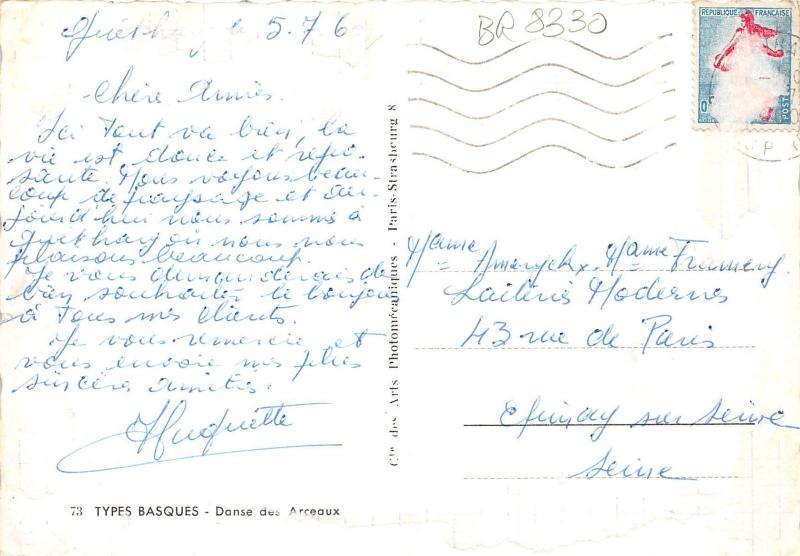 Guéthary le 5.7.6
Chère Amies.
Ici Tout va bien, la
vie est douce et repo-
sante. Nous voyons beau-
coup de paysage et au-
jourd'hui nous somme à
Guéthary où nous nous
plaisons beaucoup.
Je vous demanderais de
bien souhaiter le bonjour
à Tous mes clients.
Je vous remercie et
vous envoie mes plus
sincères amitiés.
Huguette
73 TYPES BASQUES - Danse des Arceaux
Cie des Arts Photomécaniques - Paris-Strasbourg 8
BR 8330
REPUBLIQUE FRANÇAISE
0
POSTES
Mame Ameryckx. Mame Framery.
Laiteries Modernes
43 rue de Paris
Epinay sur Seine
Seine